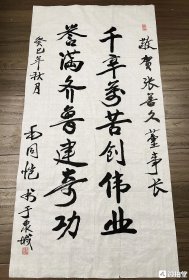 敬贺张善久董事长
千辛万苦创伟业
誉满齐鲁建奇功
癸巳年秋月
同恺书于泉城